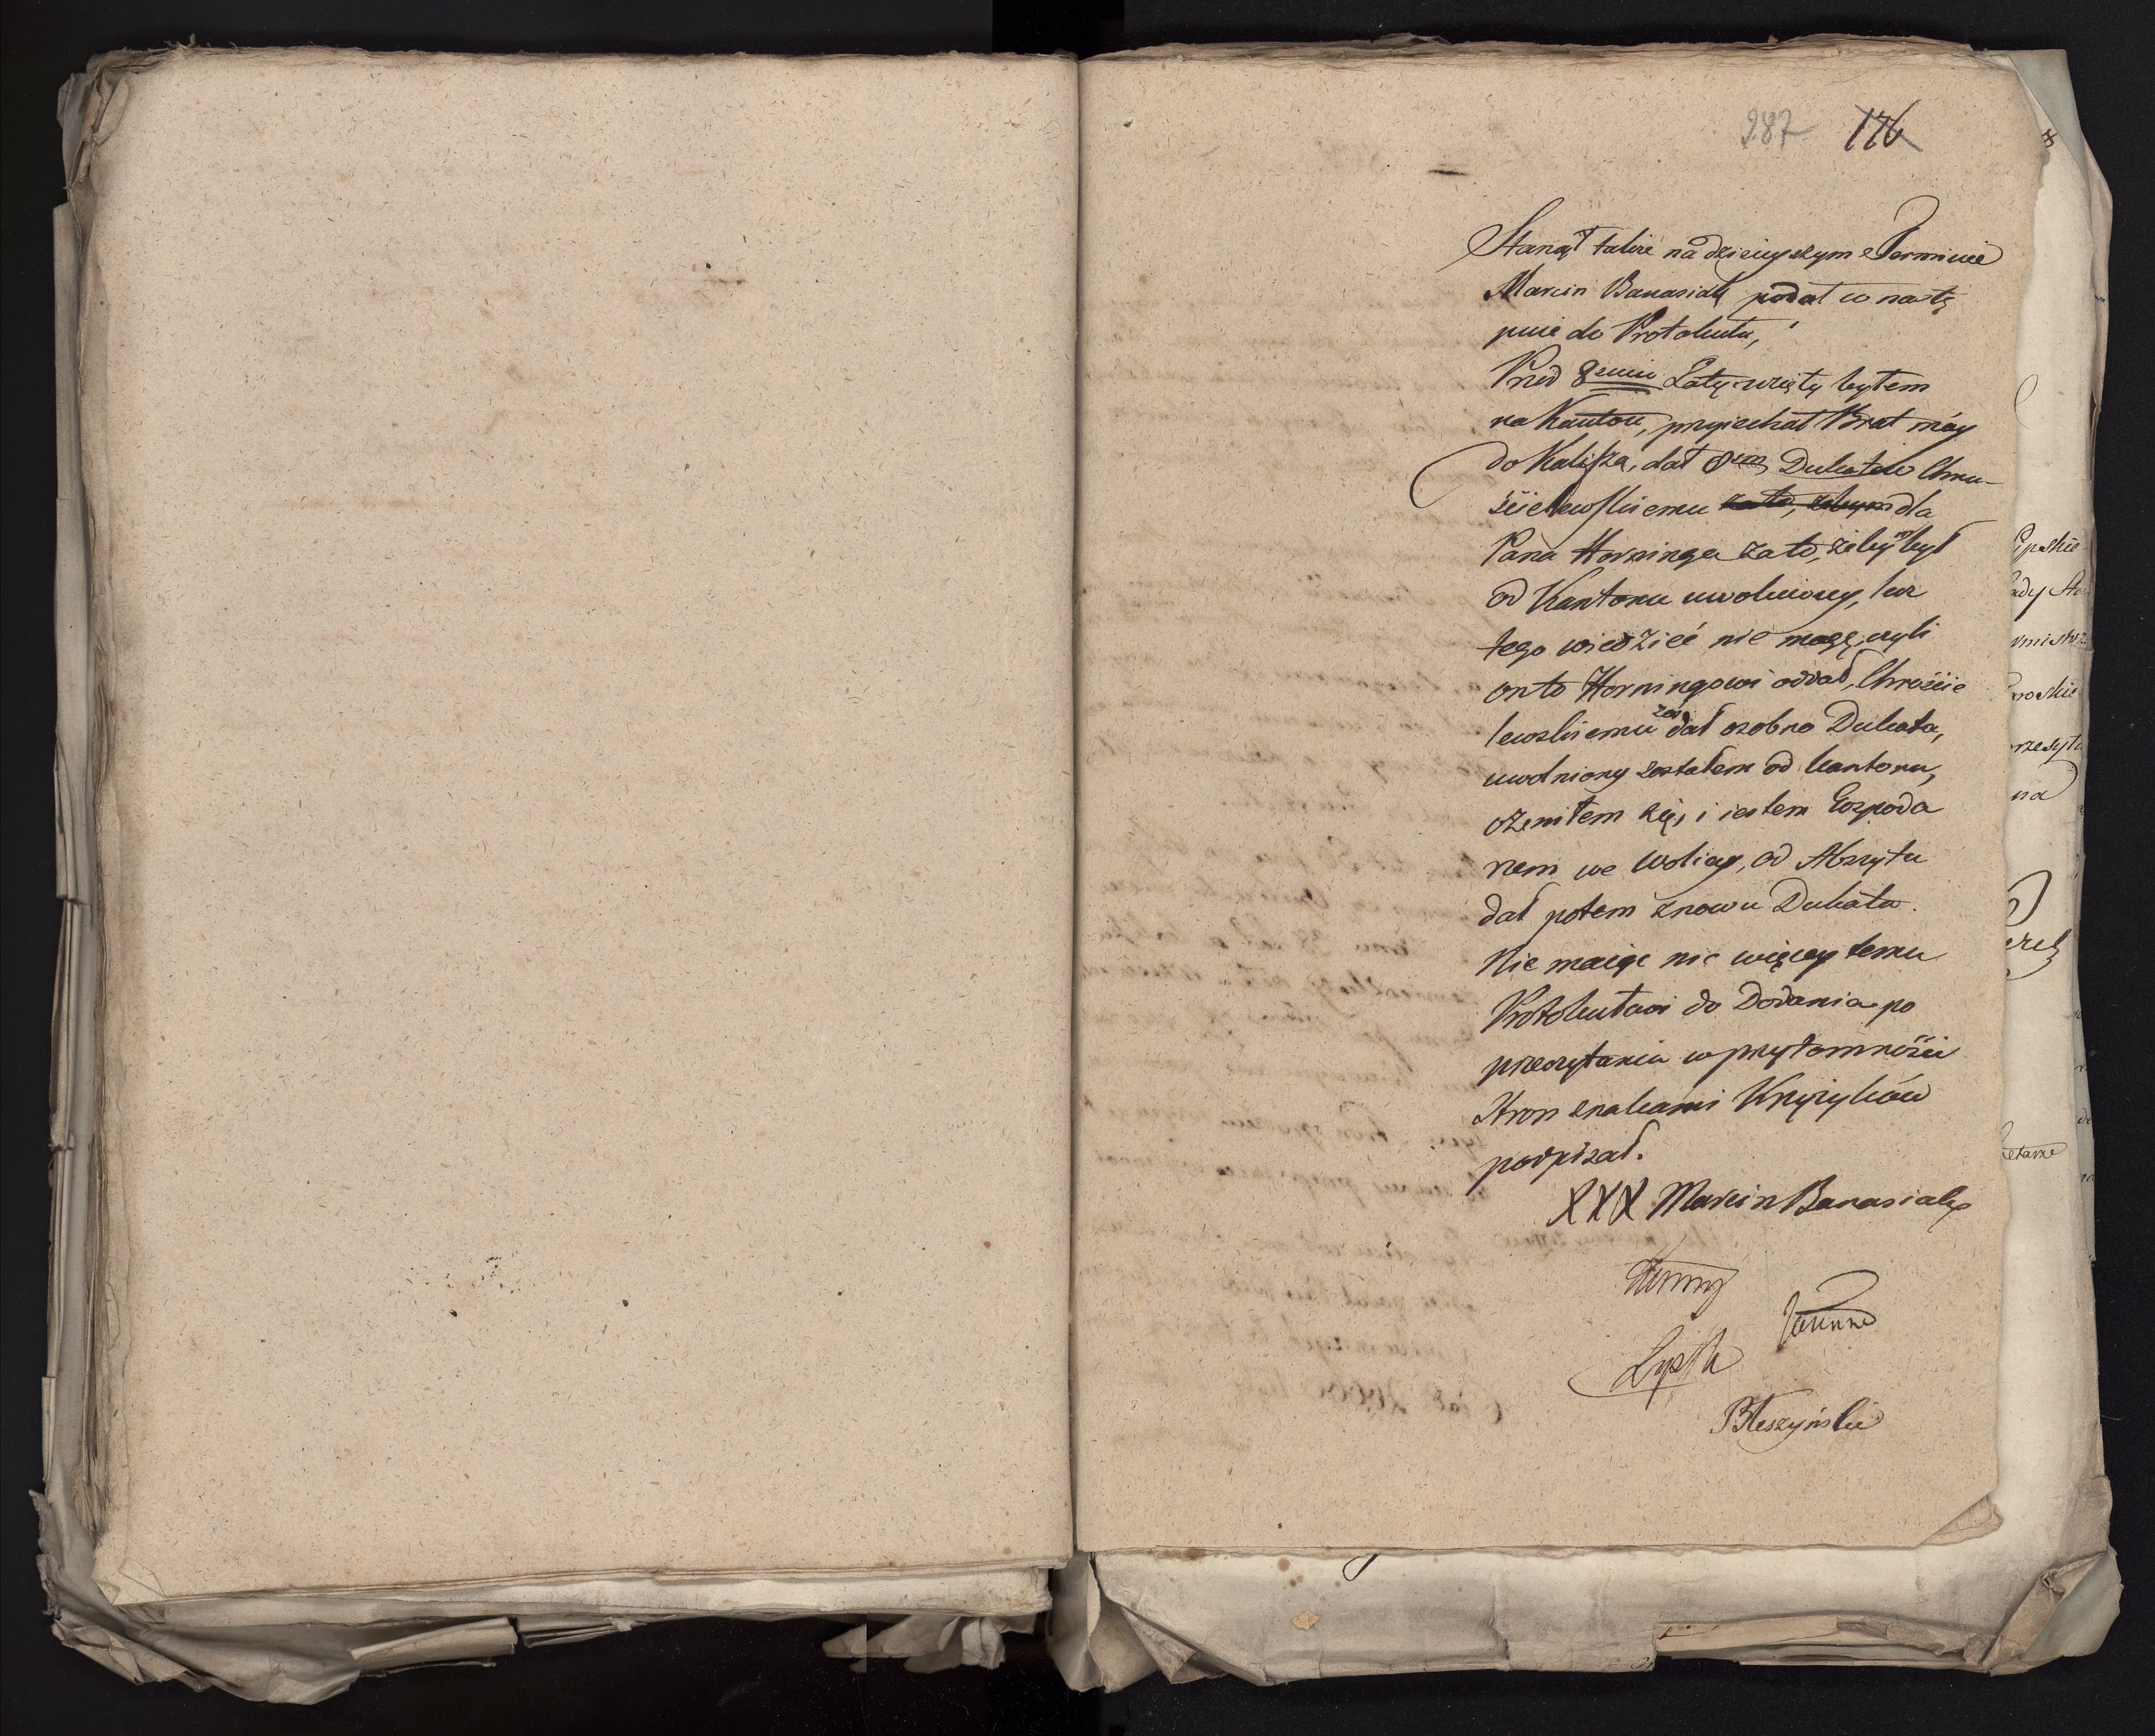 287 176
Stanął także na dzisieyszym Terminie
Marcin Banasiak podał co nastę
puie do Protokułu,
Przed 8miu Laty wzięty byłem
na Kanton, przyiechał Brat móy
do Kalisza, dał 8em Dukatów Chru-
ścielewskiemu za to, żebym dla
Pana Horninga za to, żebym był
od Kantonu uwolniony, lecz
tego wiedzieć nie mogę, czyli
on to Horningowi oddał, Chroście
lewskiemu zaś dał osobno Dukata,
uwolniony zostałem od kantonu,
ożeniłem się, i iestem Gospoda
rzem we Wolicy, od Abszytu
dał potem znowu Dukata.
Nie maiąc nic więcey temu
Protokułowi do Dodania po
przeczytaniu w przytomności
Stron znakami Krzyżyków
podpisał.
XXX Marcin Banasiak
Bleszyński